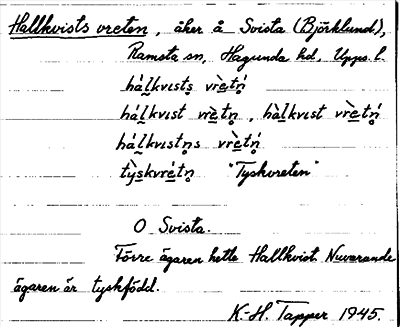 Hallkvists vreten, åker å Svista (Björklund),
Ramsta sn, Hagunda hd, Upps. l.
hálkvısts vrètń̥
hálkvıst vrètn̥, hàlkvıst vrètń̥
hálkvıstn̥s vrètń̥
tỳskvrétn̥ "Tyskvreten"
O Svista.
Förre ägaren hette Hallkvist. Nuvarande
ägaren är tyskfödd.
K.-H. Tapper 1945.